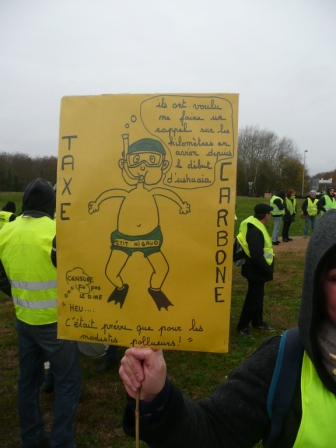 ils ont voulu
me faire un
rappel sur les
kilomètres en
avion depuis
le début
d'ushuaia
TAXE
CARBONE
PTIT NIGAUD
CENSURE
fo pas
le dire
HEU...
C'était prévu que pour les
modestes pollueurs!